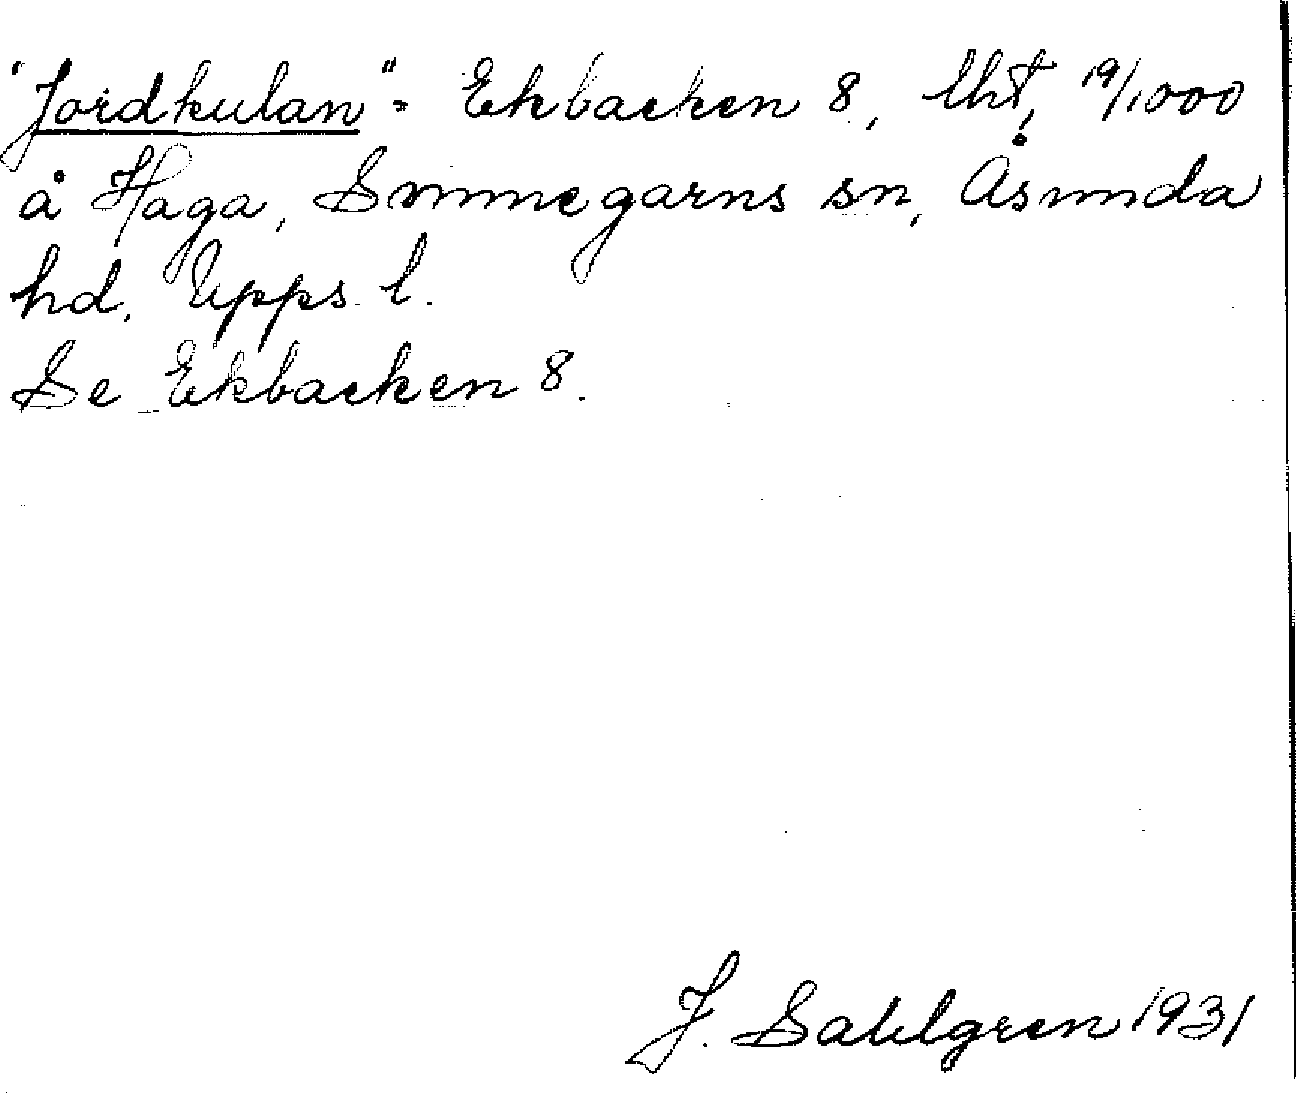 "Jordkulan" = Ekbacken 8, lht, 19/1000
å Haga, Svinnegarns sn, Åsunda
hd, Upps. l.
Se Ekbacken 8.
J. Sahlgren 1931